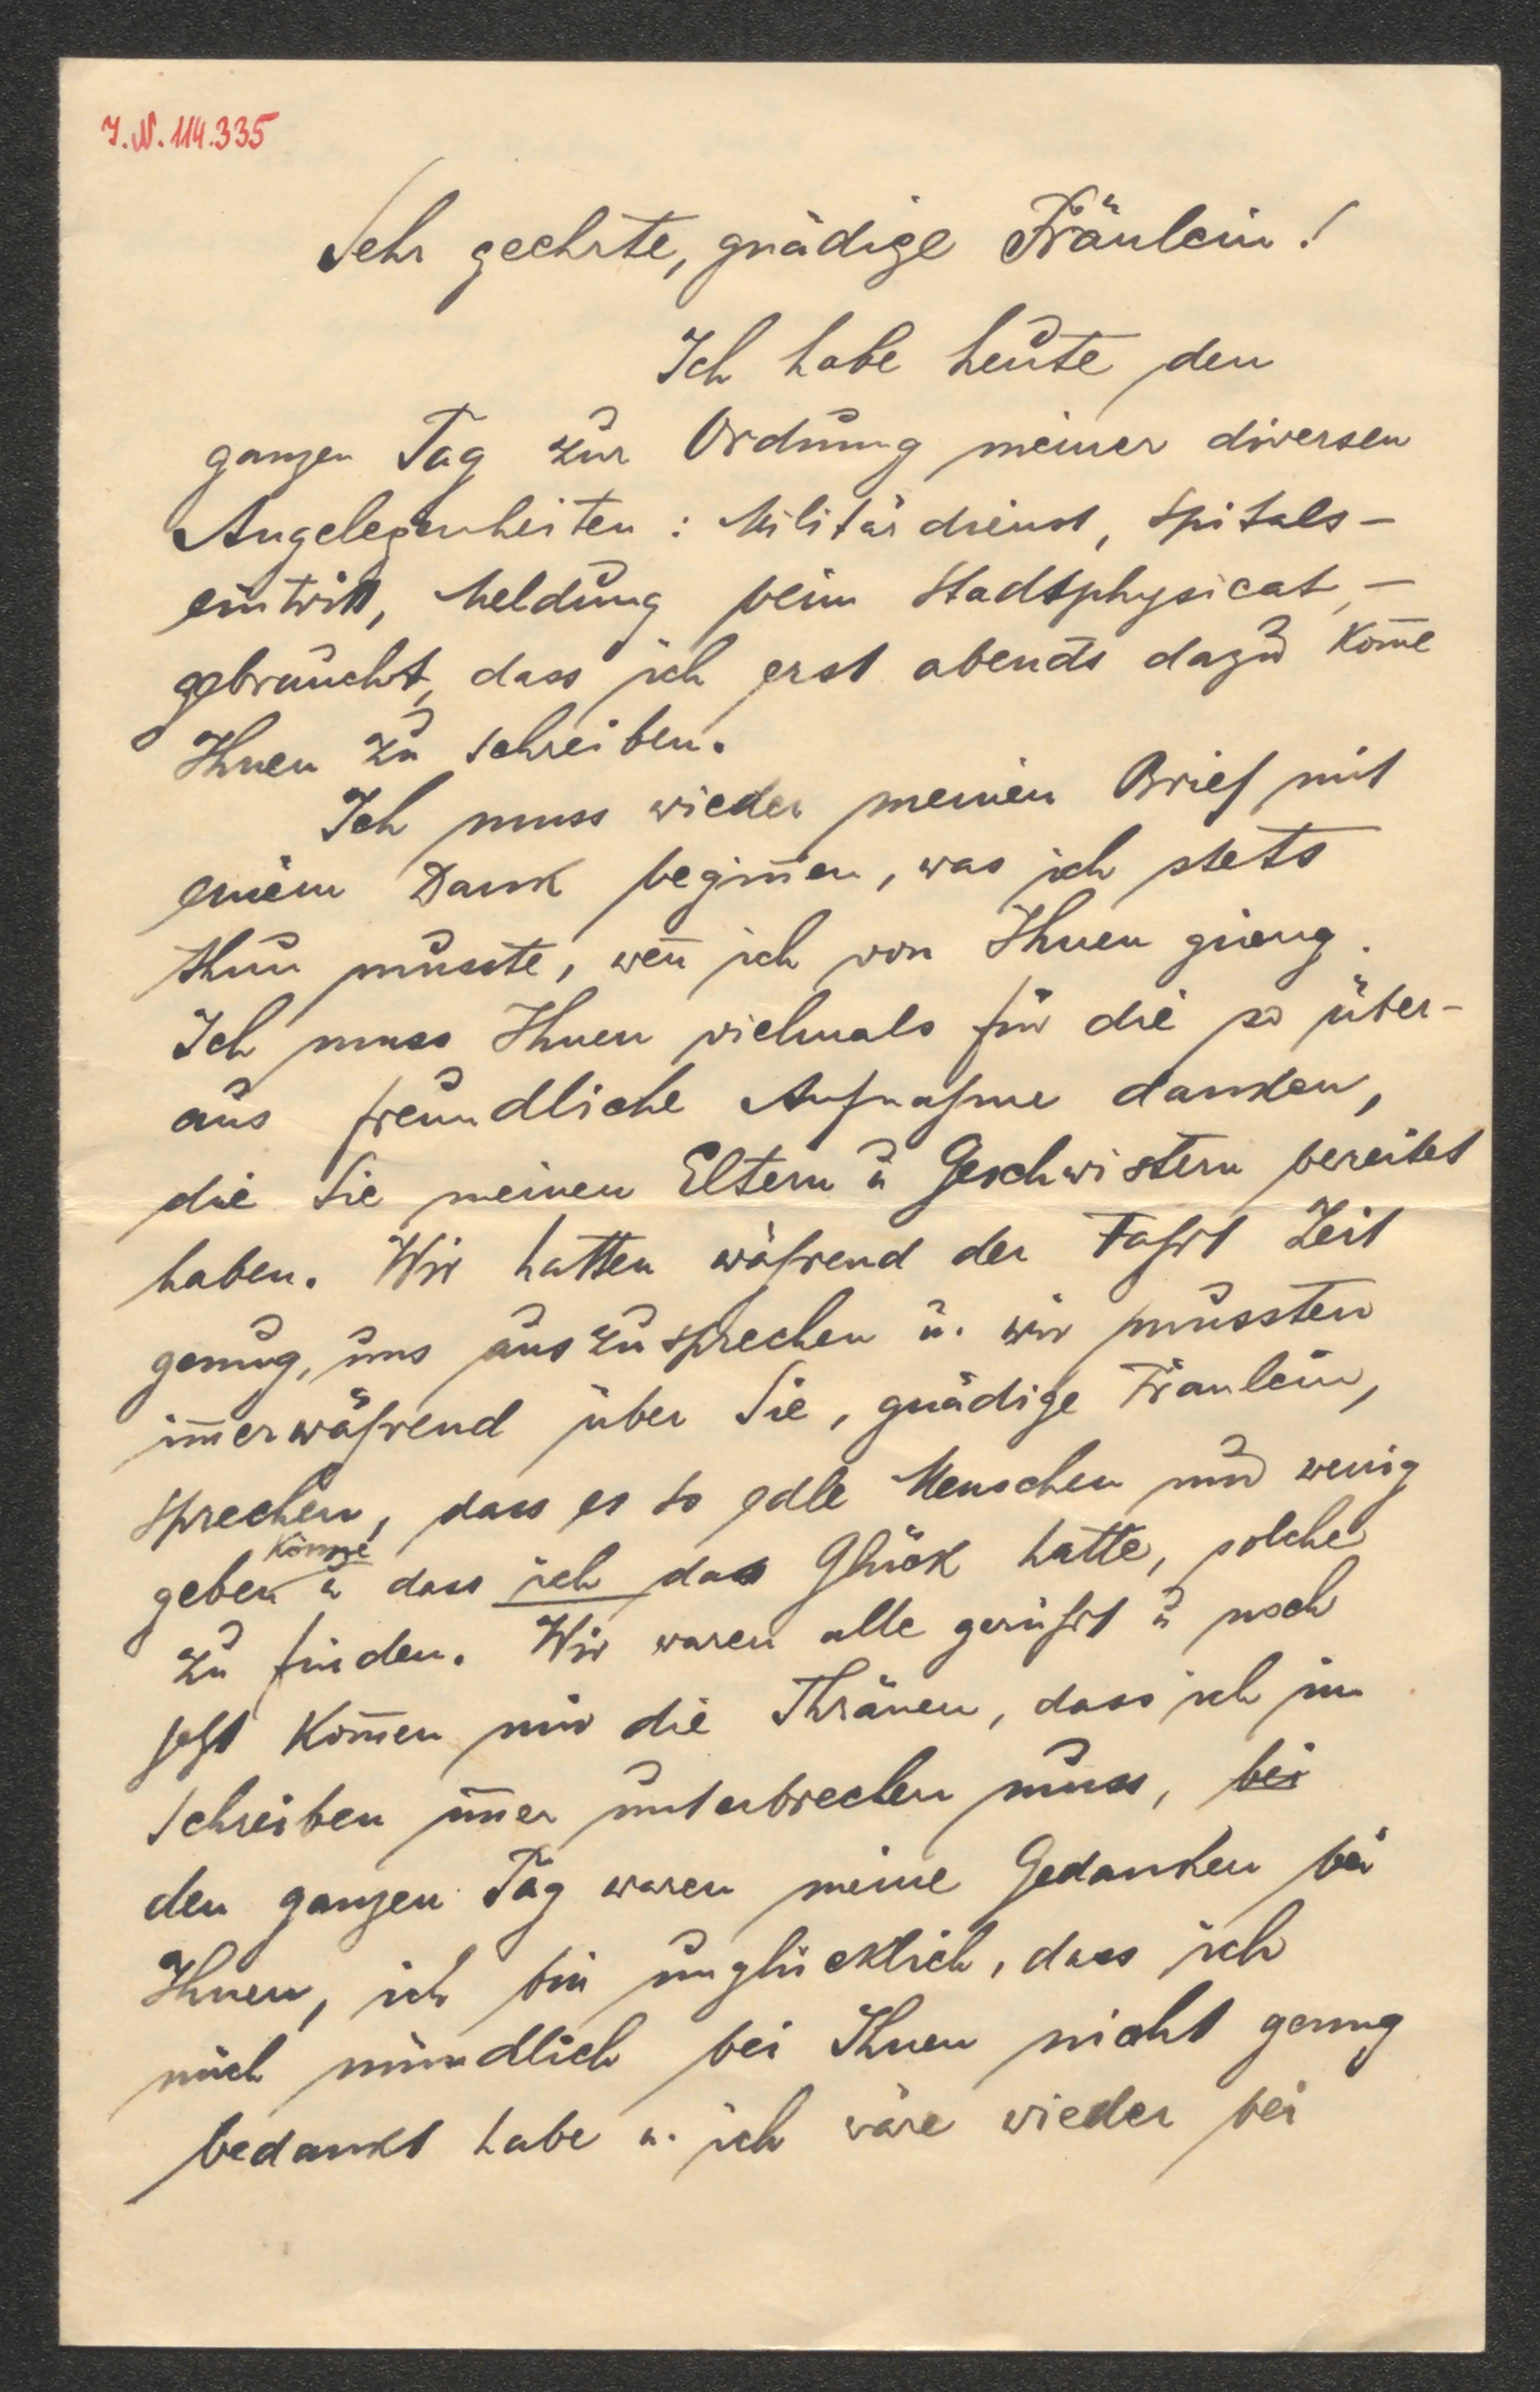 J.N. 114.335
Sehr geehrte, gnädige Fräulein!
Ich habe heute den
ganzen Tag zur Ordnung meiner diversen
Angelegenheiten: Militärdienst, Spitals-
eintritt, Meldung beim Stadtphysicat, -
gebraucht, dass ich erst abends dazu kom̄e
Ihnen zu schreiben.
Ich muss wieder meinen Brief mit
einem Dank begin̄en, was ich stets
thun musste, wen̄ ich von Ihnen gieng.
Ich muss Ihnen vielmals für die so über-
aus freundliche Aufnahme danken,
die Sie meinen Eltern u Geschwistern bereitet
haben. Wir hatten während der Fahrt Zeit
genug, uns auszusprechen u. wir mussten
im̄erwährend über Sie, gnädige Fräulein,
sprechen, dass es so edle Menschen nur wenig
geben könne u dass ich das Glück hatte, solche
zu finden. Wir waren alle gerührt u noch
jetzt kom̄en mir die Thränen, dass ich im
Schreiben im̄er unterbrechen muss, bei
den ganzen Tag waren meine Gedanken bei
Ihnen, ich bin unglücklich, dass ich
mich mündlich bei Ihnen nicht genug
bedankt habe u. ich wäre wieder bei